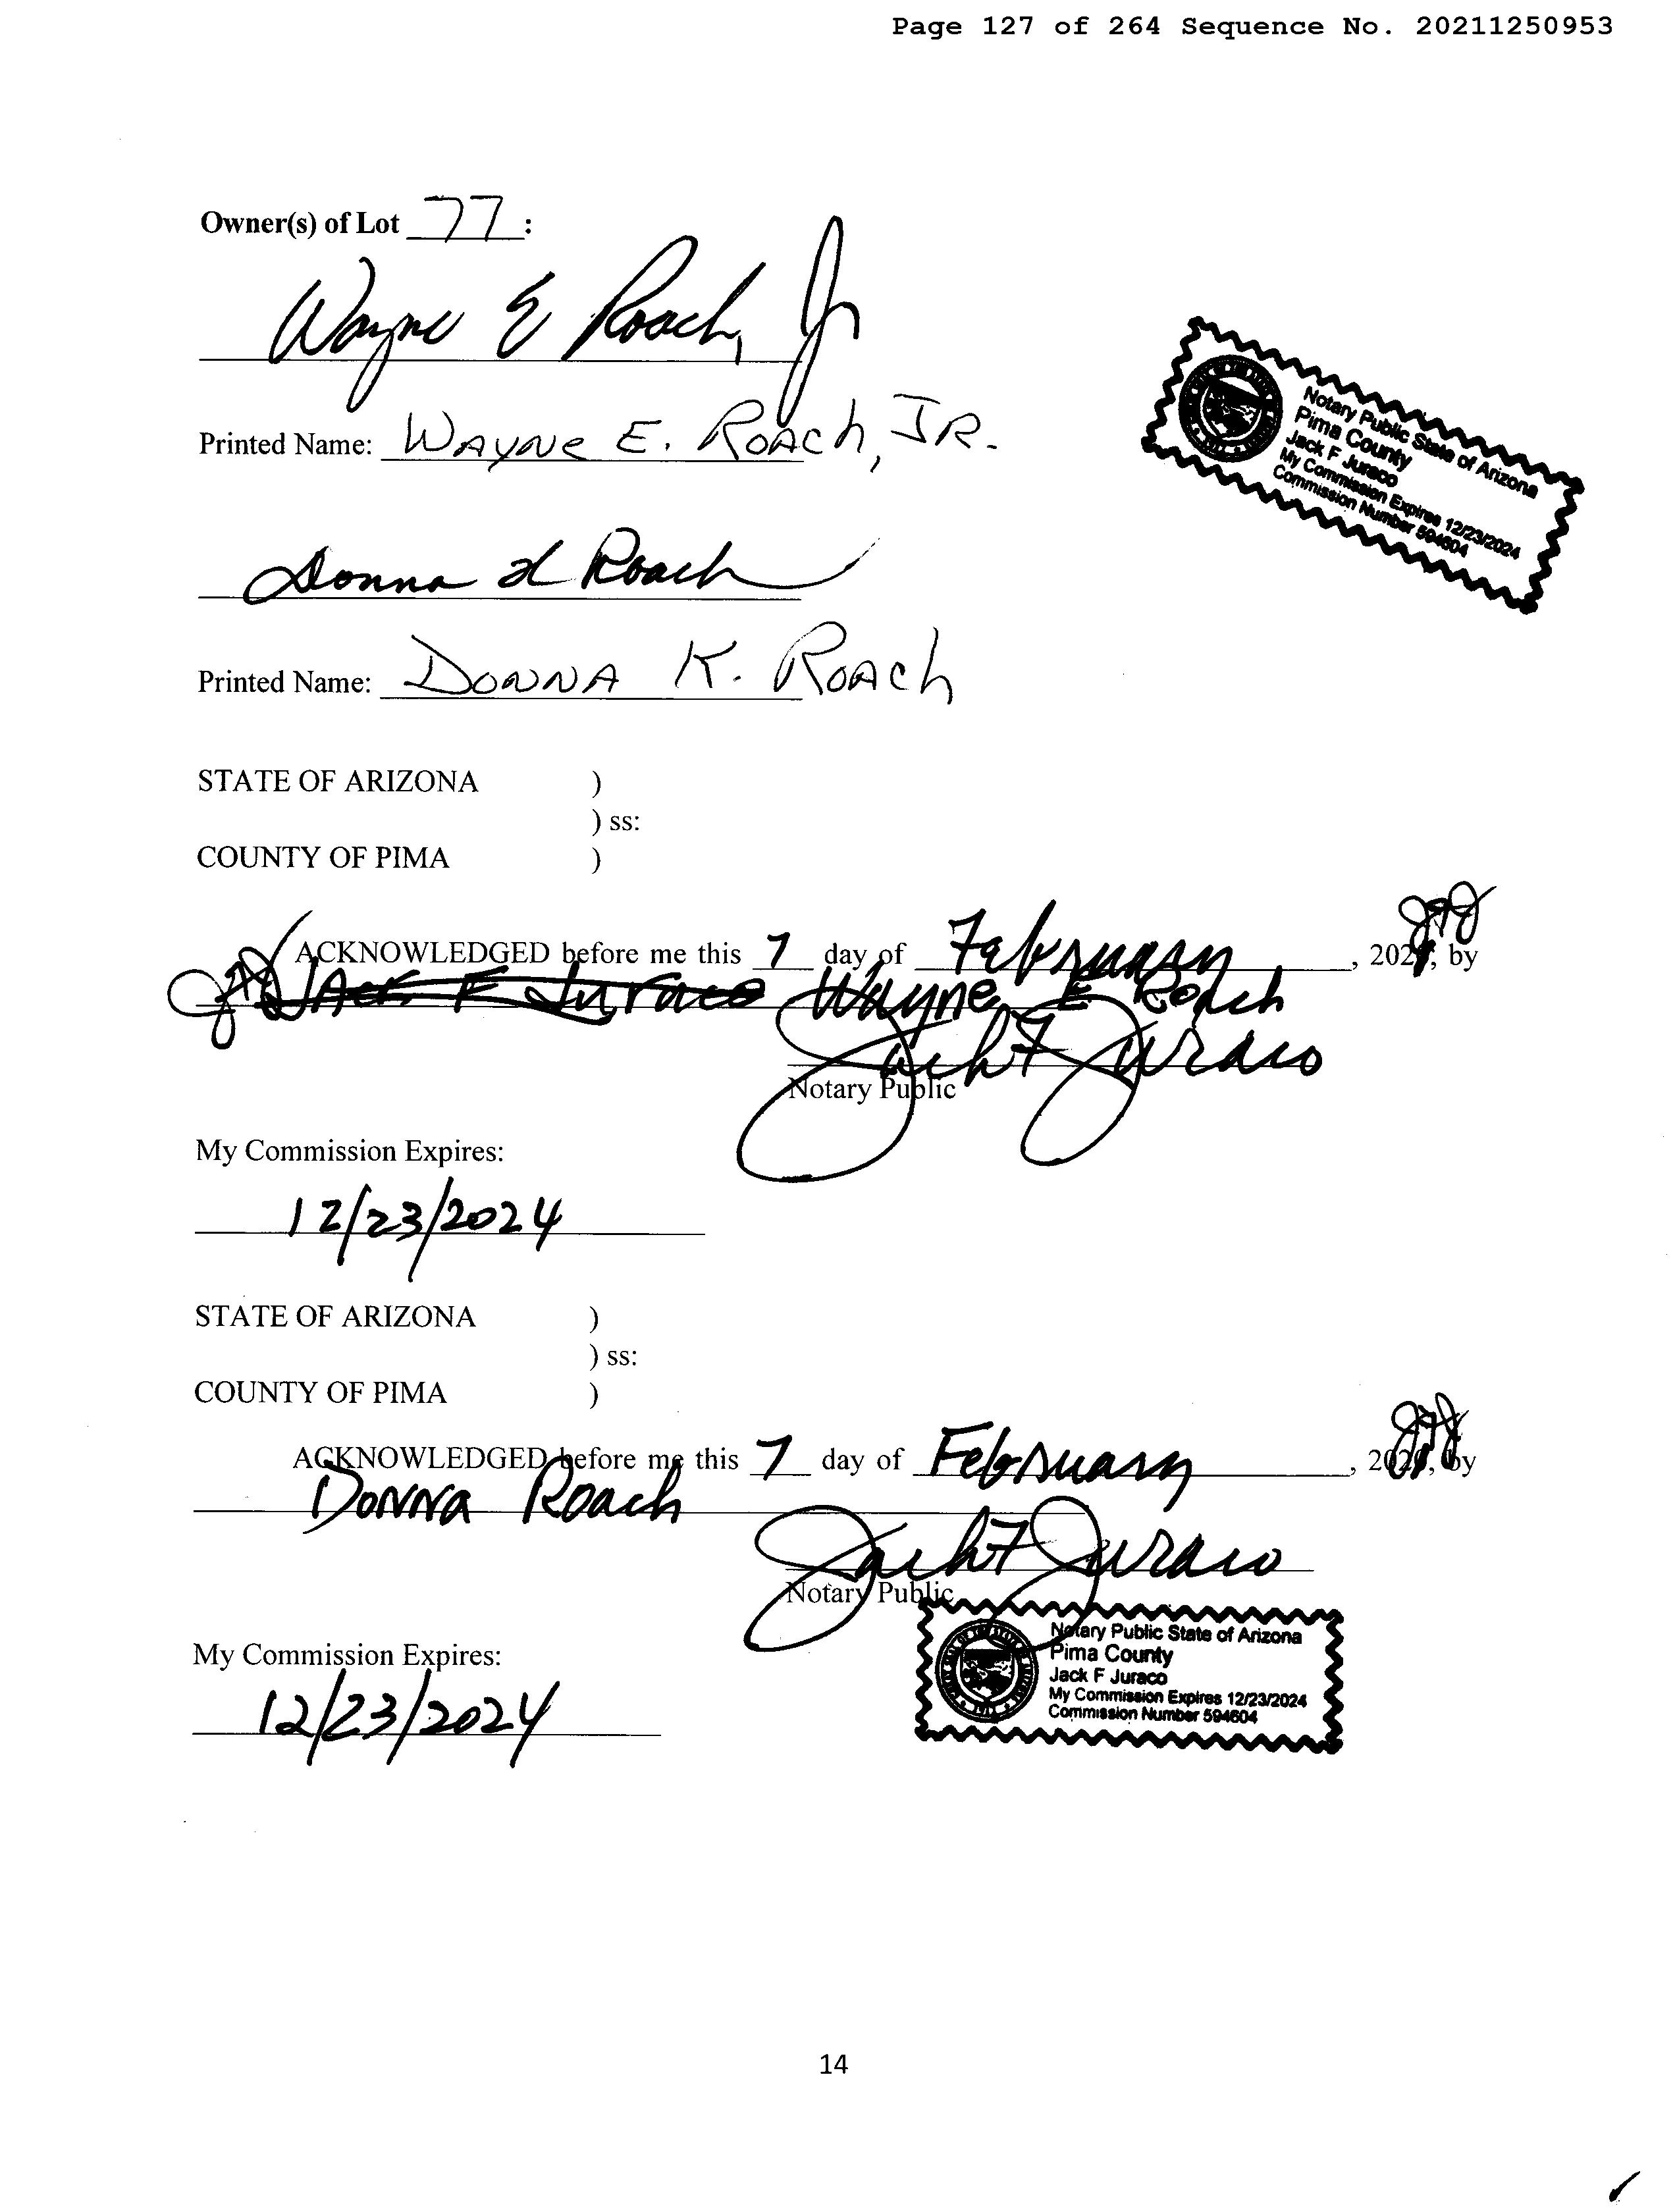 Page 127 of 264 Sequence No. 20211250953
Owner(s) of Lot 77:
Wayne E Roach, Jr
Printed Name: WAYNE E. ROACH, JR.
Notary Public State of Arizona
Pima County
Jack F Juraco
My Commission Expires 12/23/2024
Commission Number 594604
Donna K Roach
Printed Name: DONNA K. ROACH
STATE OF ARIZONA )
) ss:
COUNTY OF PIMA )
ACKNOWLEDGED before me this 7 day of February, by
JFJ Jack F Juraco Wayne E Roach
Jack F Juraco
Notary Public
My Commission Expires:
12/23/2024
STATE OF ARIZONA )
) ss:
COUNTY OF PIMA )
ACKNOWLEDGED before me this 7 day of February, by
Donna Roach
Jack F Juraco
Notary Public
Notary Public State of Arizona
Pima County
Jack F Juraco
My Commission Expires 12/23/2024
Commission Number 594604
My Commission Expires:
12/23/2024
14